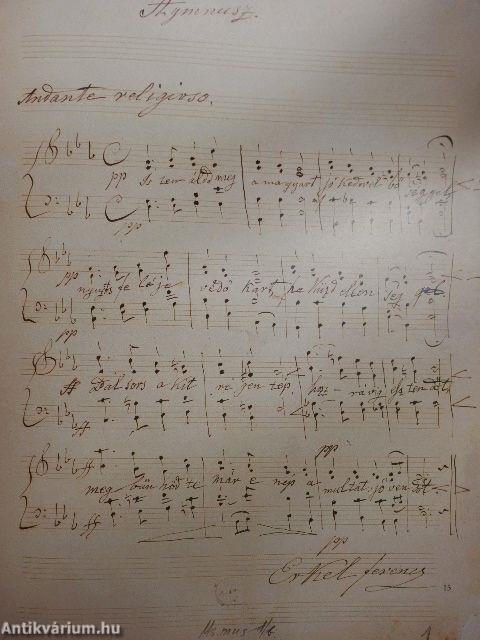 Hymnusz.
Andante religioso.
pp Isten áldd meg a magyart jó kedvvel bő séggel
pp
pp nyújts fe léje védő kart, ha küzd ellen ség gel
pp
ff Bal sors a kit ré gen tép, hoz rá víg esz ten dőt
ff
pp
ff meg bűn hőd te már e nép a multat jö ven dőt
ff
pp
Erkel Ferencz
15
Ms. mus.
Antikvárium.hu